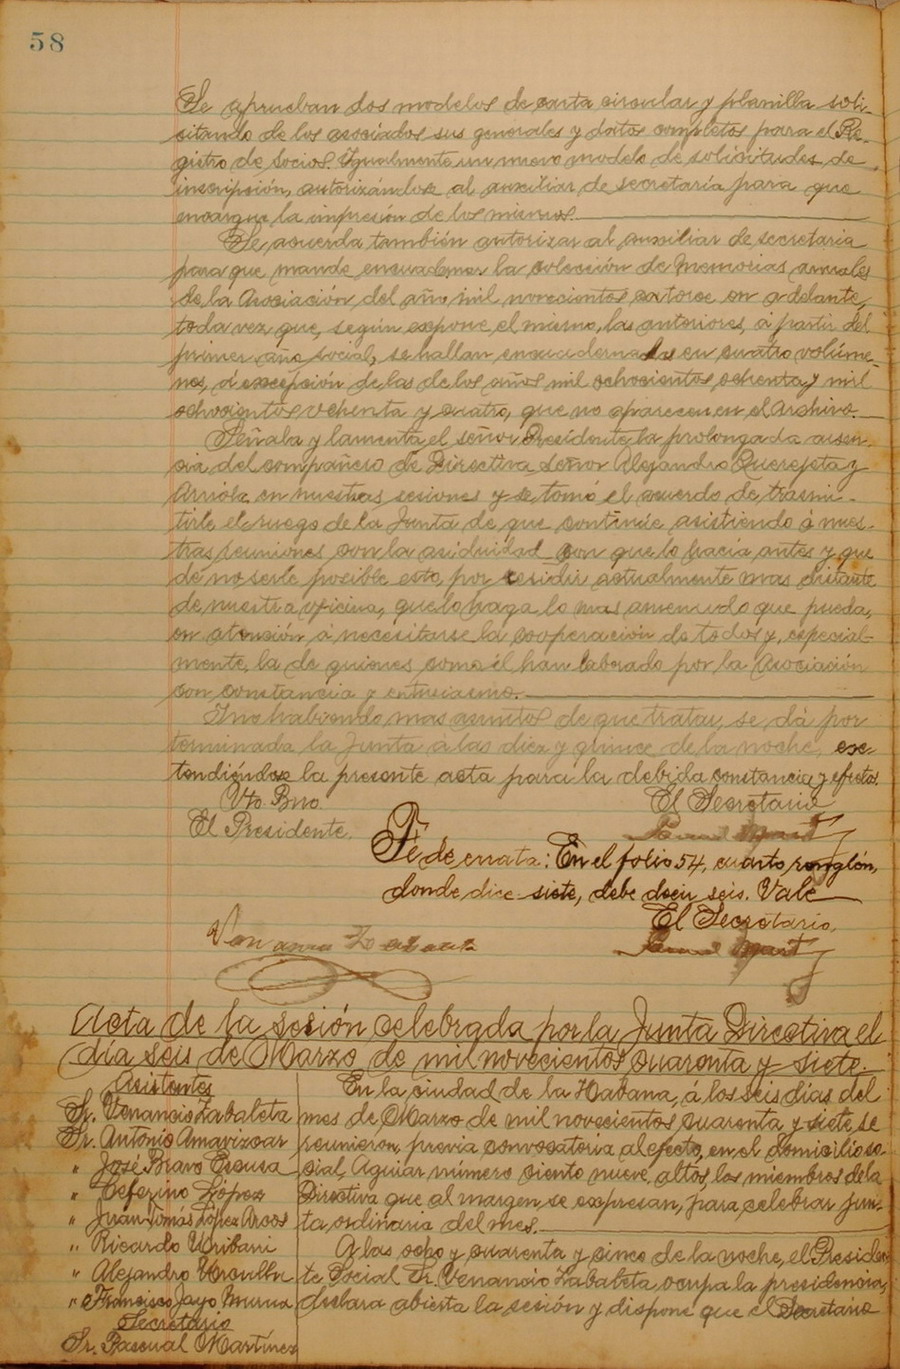 58
Se aprueban dos modelos de carta circular y planilla soli-
citando de los asociados sus generales y datos completos para el Re-
gistro de Socios. Igualmente un nuevo modelo de solicitudes de
inscripción, autorizándose al auxiliar de secretaría para que
encargue la impresión de los mismos.
Se acuerda también autorizar al auxiliar de secretaria
para que mande encuadernar la colección de Memorias anuales
de la Asociación del año mil novecientos catorce en adelante,
toda vez que, según expone el mismo, las anteriores, á partir del
primer año social, se hallan encuadernadas en cuatro volúme-
nes, á excepción de las de los años mil ochocientos ochenta y mil
ochocientos ochenta y cuatro, que no aparecen en el Archivo.
Señala y lamenta el señor Presidente la prolongada ausen-
cia del compañero de Directiva señor Alejandro Querejeta y
Arriola en nuestras sesiones y se tomó el acuerdo de trasmi-
tirle el ruego de la Junta de que continúe asistiendo á nues-
tras reuniones con la asiduidad con que lo hacía antes y que
de no serle posible esto, por residir actualmente mas distante
de nuestra oficina, que lo haga lo mas amenudo que pueda,
en atención á necesitarse la cooperación de todos y, especial-
mente, la de quienes como él han laborado por la Asociación
con constancia y entusiasmo.
Y no habiendo mas asuntos de que tratar, se dá por
terminada la Junta á las diez y quince de la noche, ex-
tendiéndose la presente acta para la debida constancia y efectos.
Vto Bno El Secretario
El Presidente.
Fé de errata: En el folio 54, cuarto renglón,
donde dice siete, debe decir seis. Vale
El Secretario,
Acta de la sesión celebrada por la Junta Directiva el
día seis de Marzo de mil novecientos cuarenta y siete.
Asistentes
Sr. Venancio Zabaleta
Sr. Antonio Amavizcar
" José Bravo
" Ceferino López
" Juan Tomás López Arcos
" Ricardo Uribarri
" Alejandro
" Francisco Jayo Murua
Secretario
Sr. Pascual Martínez
En la ciudad de la Habana, á los seis días del
mes de Marzo de mil novecientos cuarenta y siete, se
reunieron, previa convocatoria al efecto, en el domicilio so-
cial, Aguiar número ciento nueve, altos, los miembros de la
Directiva que al margen se expresan, para celebrar jun-
ta ordinaria del mes.
A las ocho y cuarenta y cinco de la noche, el Presiden-
te Social Sr. Venancio Zabaleta, ocupa la presidencia,
declara abierta la sesión y dispone que el Secretario